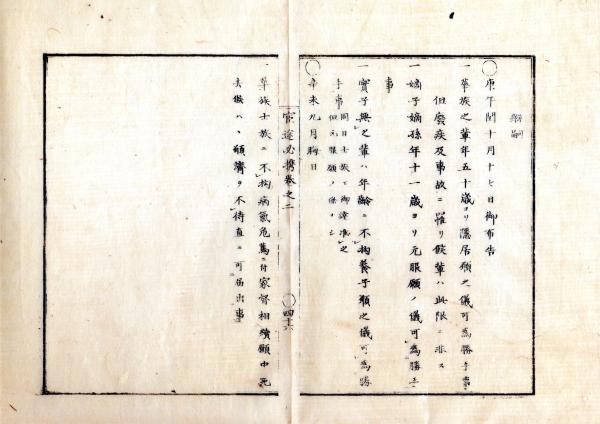 庚午閏十月十七日御布告
一華族之輩年五十歳ヨリ隠居願之儀可為勝手事
但癈疾及事故ニ罹リ候輩ハ此限ニ非ス
一嫡子嫡孫年十一歳ヨリ元服願ノ儀可為勝手
事
一實子無之輩ハ年齢ニ不拘養子願之儀可為勝
手事
同日士族モ御諱准之
但元服願ノ條ナシ
辛未九月晦日
官途必携巻之二
四十六
一華族士族ニ不拘病氣危篤ニ付家督相續願中死
去候ハヽ願濟ヲ不待直ニ可届出事